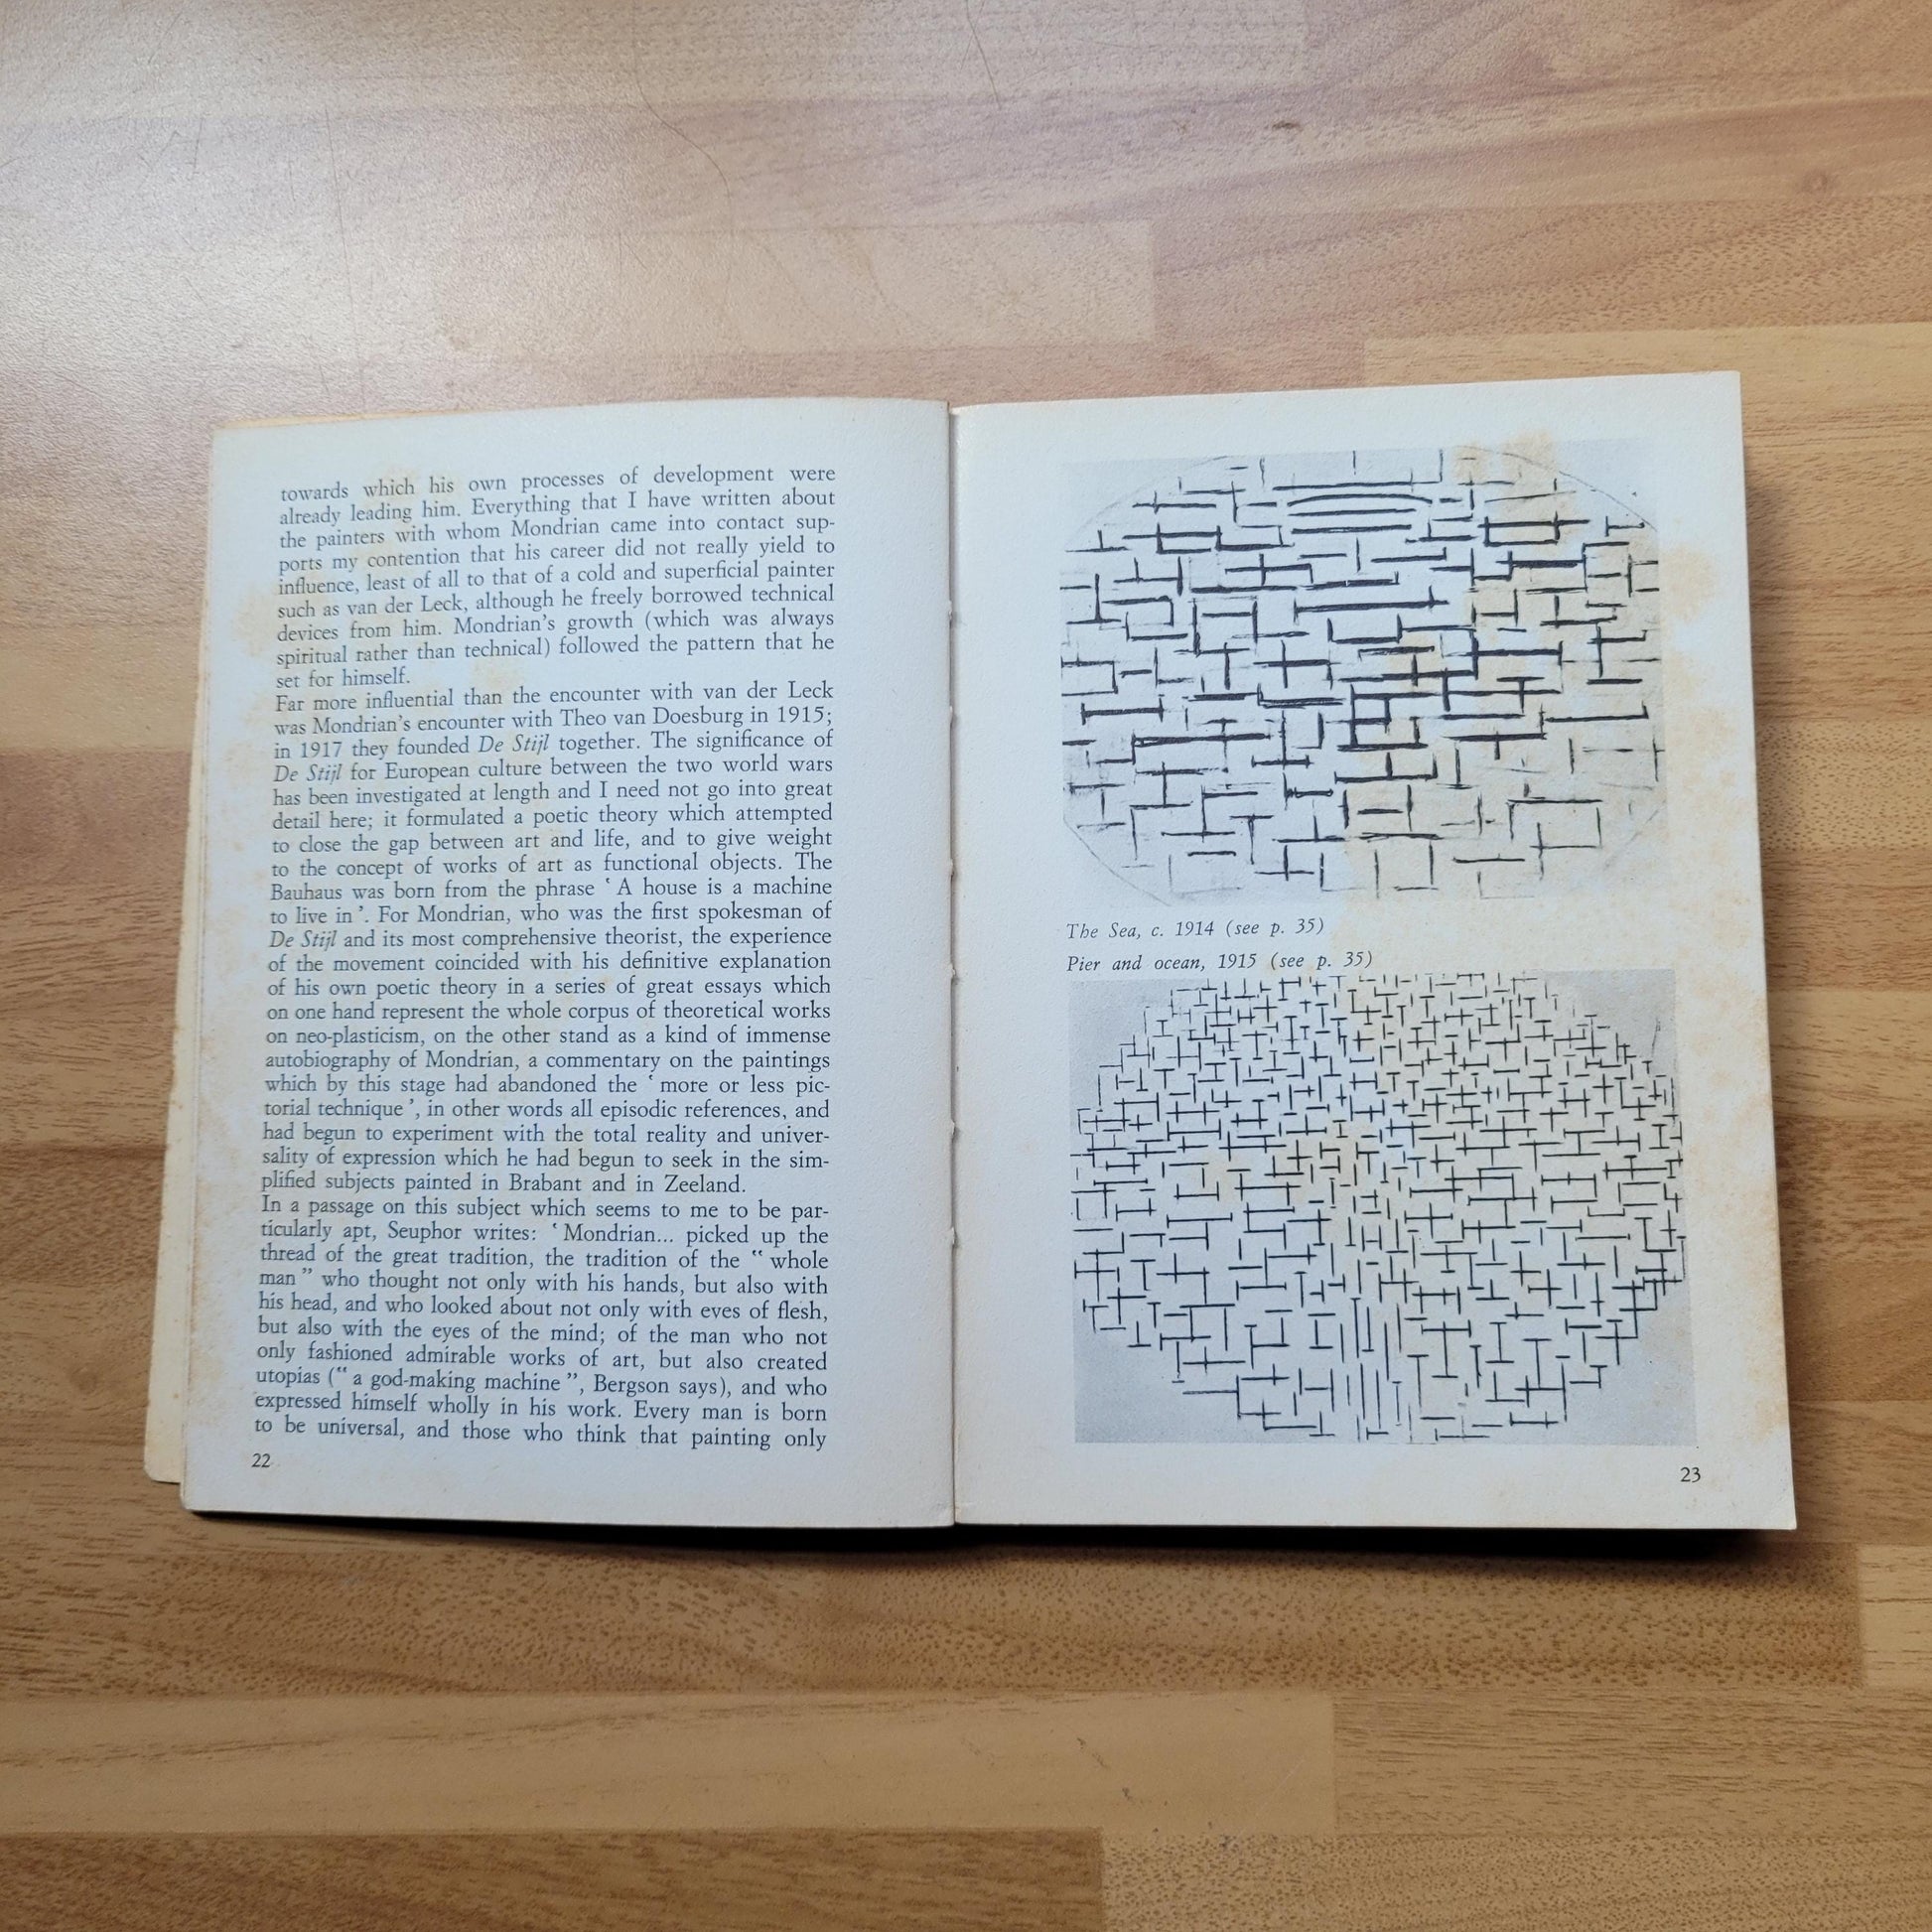 towards which his own processes of development were
already leading him. Everything that I have written about
the painters with whom Mondrian came into contact sup-
ports my contention that his career did not really yield to
influence, least of all to that of a cold and superficial painter
such as van der Leck, although he freely borrowed technical
devices from him. Mondrian's growth (which was always
spiritual rather than technical) followed the pattern that he
set for himself.
Far more influential than the encounter with van der Leck
was Mondrian's encounter with Theo van Doesburg in 1915;
in 1917 they founded De Stijl together. The significance of
De Stijl for European culture between the two world wars
has been investigated at length and I need not go into great
detail here; it formulated a poetic theory which attempted
to close the gap between art and life, and to give weight
to the concept of works of art as functional objects. The
Bauhaus was born from the phrase ‘ A house is a machine
to live in ’. For Mondrian, who was the first spokesman of
De Stijl and its most comprehensive theorist, the experience
of the movement coincided with his definitive explanation
of his own poetic theory in a series of great essays which
on one hand represent the whole corpus of theoretical works
on neo-plasticism, on the other stand as a kind of immense
autobiography of Mondrian, a commentary on the paintings
which by this stage had abandoned the ‘ more or less pic-
torial technique ’, in other words all episodic references, and
had begun to experiment with the total reality and univer-
sality of expression which he had begun to seek in the sim-
plified subjects painted in Brabant and in Zeeland.
In a passage on this subject which seems to me to be par-
ticularly apt, Seuphor writes: ‘ Mondrian... picked up the
thread of the great tradition, the tradition of the “ whole
man ” who thought not only with his hands, but also with
his head, and who looked about not only with eyes of flesh,
but also with the eyes of the mind; of the man who not
only fashioned admirable works of art, but also created
utopias (“ a god-making machine ”, Bergson says), and who
expressed himself wholly in his work. Every man is born
to be universal, and those who think that painting only
22
The Sea, c. 1914 (see p. 35)
Pier and ocean, 1915 (see p. 35)
23